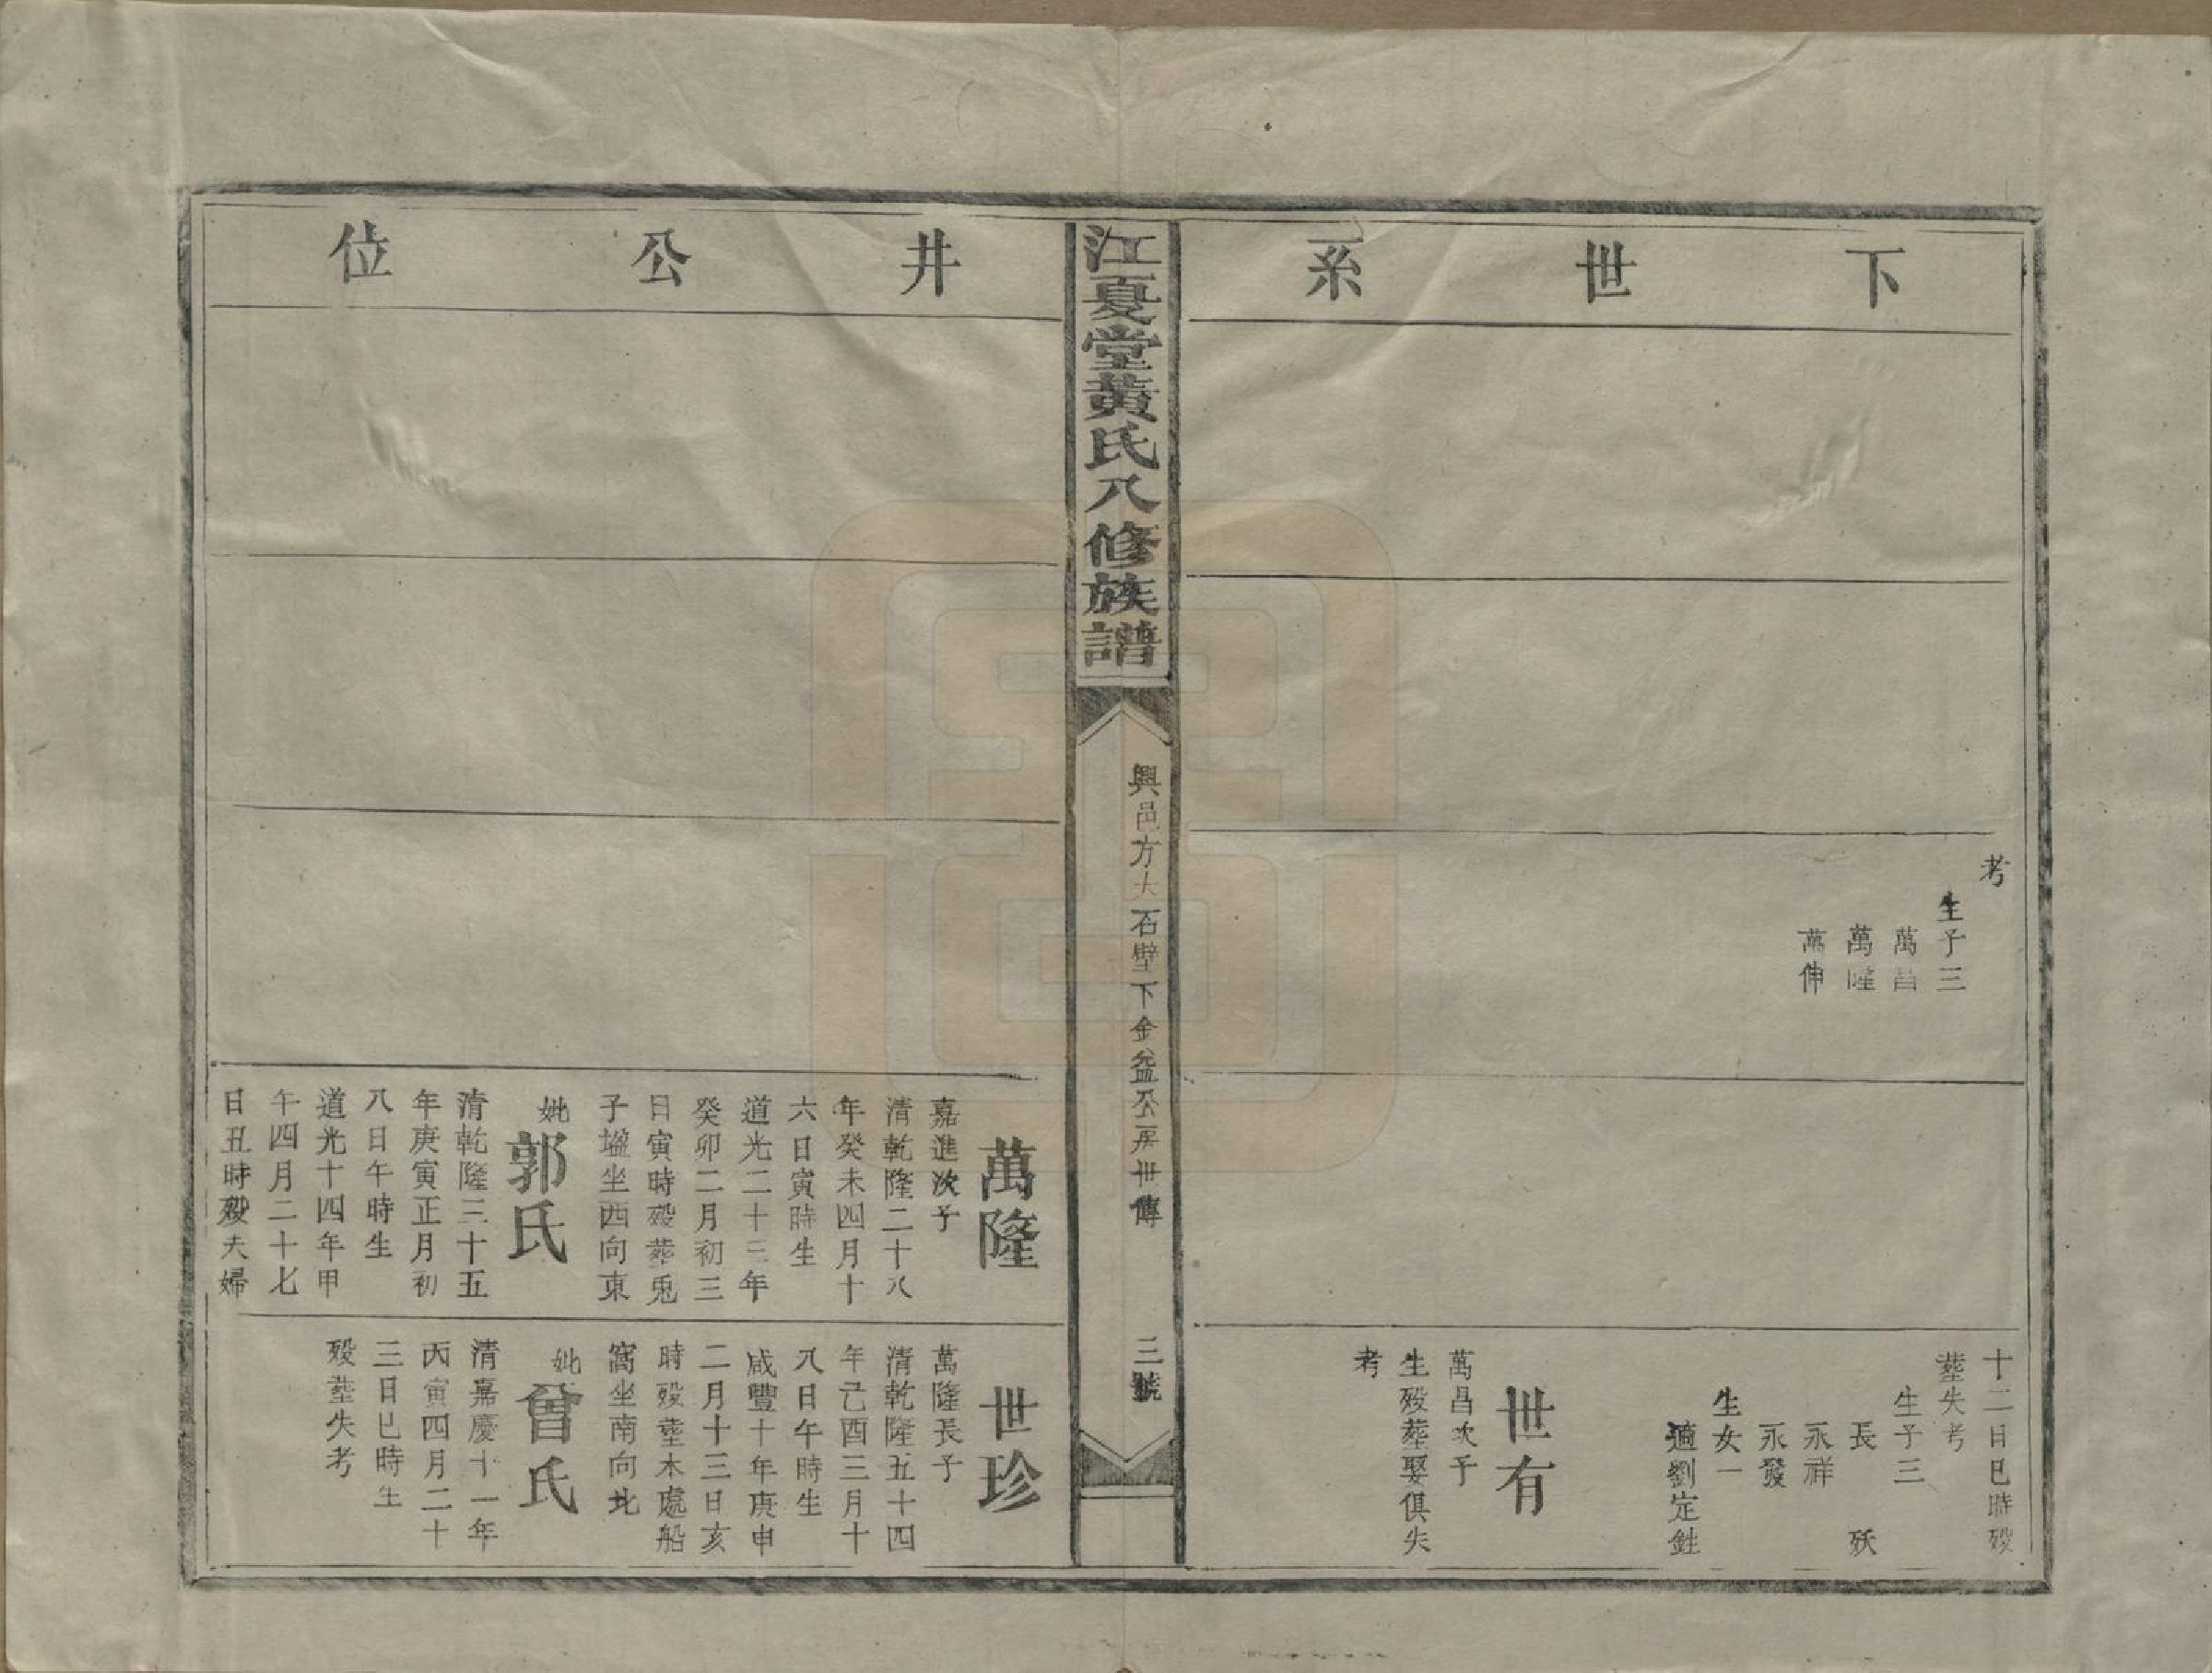 下世系
考
生子三
萬昌
萬隆
萬伸
十二日巳時歿
塟失考
生子三
長 殀
永祥
永發
生女一
適劉定銈
世有
萬昌次子
生歿塟娶俱失
考
江夏堂黃氏八修族譜
興邑方大石壁下金益公房世傳
三號
井公位
萬隆
嘉進次子
清乾隆二十八
年癸未四月十
六日寅時生
道光二十三年
癸卯二月初三
日寅時歿葬兎
子塭坐西向東
妣郭氏
清乾隆三十五
年庚寅正月初
八日午時生
道光十四年甲
午四月二十七
日丑時歿夫婦
世珍
萬隆長子
清乾隆五十四
年己酉三月十
八日午時生
咸豐十年庚申
二月十三日亥
時歿塟木處船
窩坐南向北
妣曾氏
清嘉慶十一年
丙寅四月二十
三日巳時生
歿塟失考